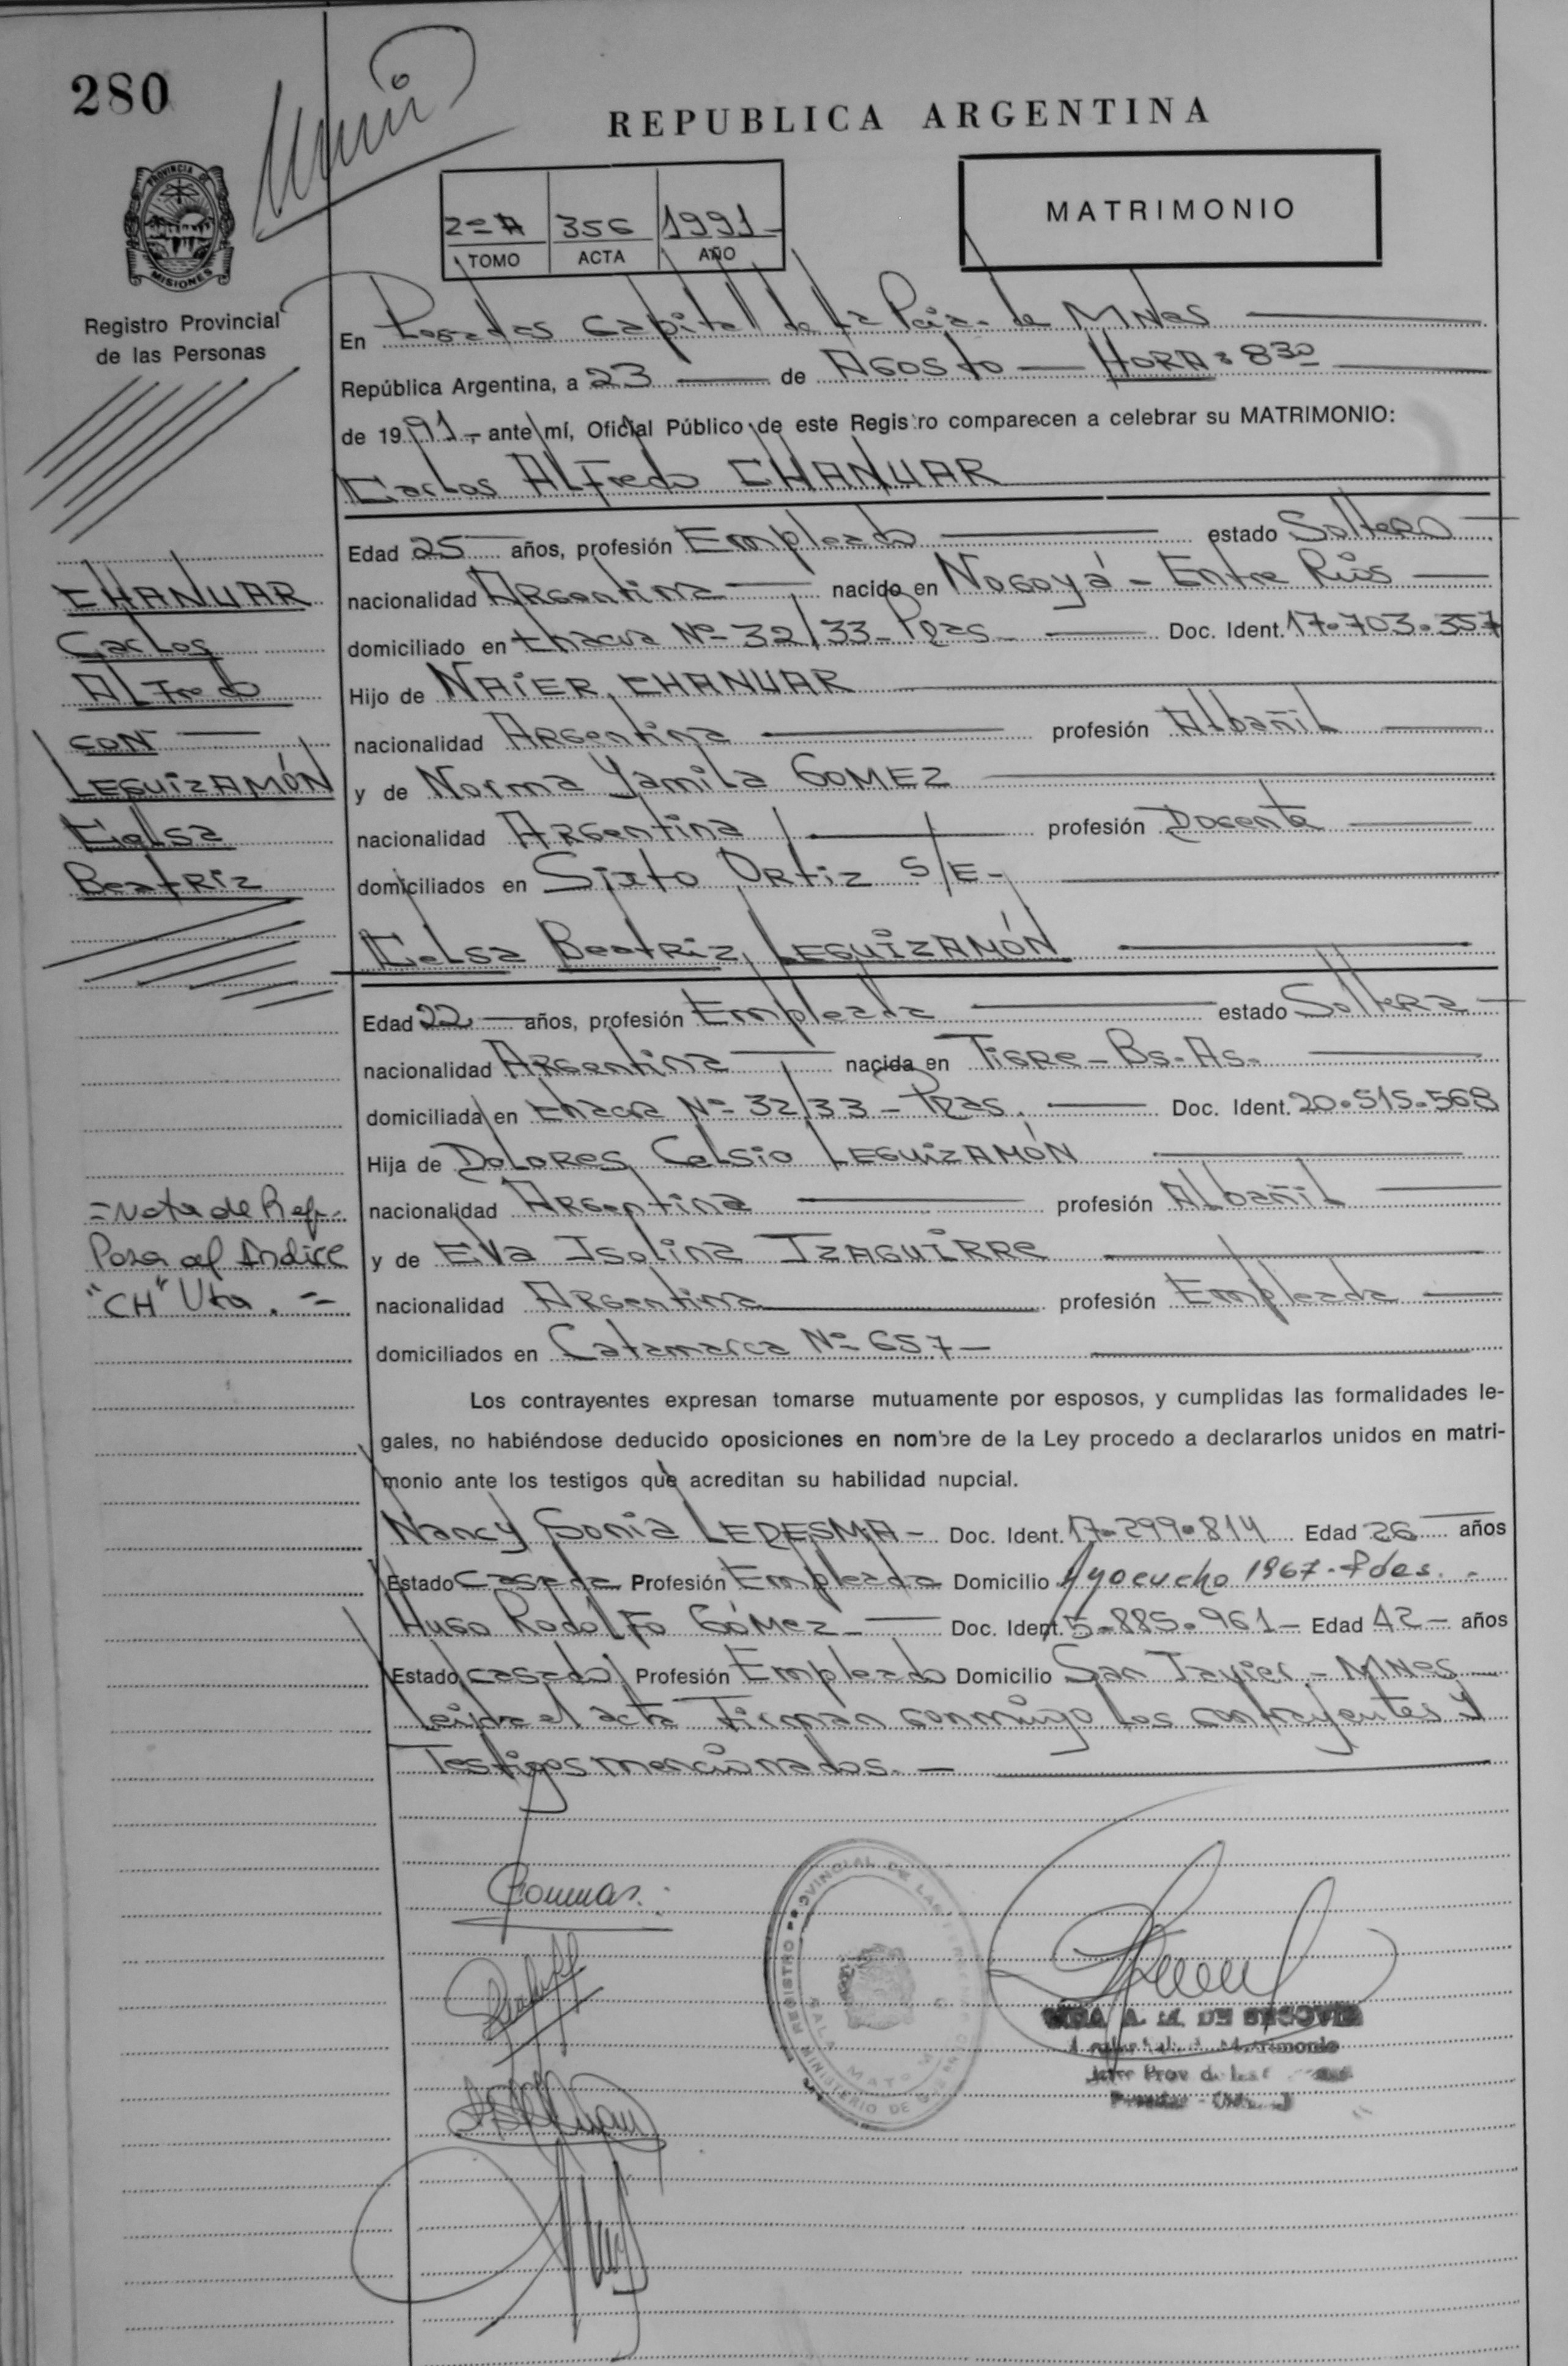 280
REPUBLICA ARGENTINA
MATRIMONIO
2= A 356 1991-
TOMO ACTA AÑO
PROVINCIA DE
MISIONES
Registro Provincial
de las Personas
En Posadas Capital de la Pcia. de MNes
República Argentina, a 23 de AGOSto HORA: 830
de 1991.- ante mí, Oficial Público de este Registro comparecen a celebrar su MATRIMONIO:
Carlos ALFredo CHANUAR
CHANUAR
Carlos
ALFredo
CON
LEGUIZAMÓN
Celsa
BeatRiz
Edad 25 años, profesión Empleado estado SolteRO
nacionalidad ARGentina nacido en NoGoyá - Entre Ríos
domiciliado en Chacra Nº 32/33 - Pdas. Doc. Ident. 17.703.357
Hijo de NAiER CHANUAR
nacionalidad ARGentina profesión Albañil
y de Norma Yamila GOMEZ
nacionalidad ARGentina profesión Docente
domiciliados en Sixto ORtiz S/E-
Celsa BeatRiz LEGUIZAMÓN
Edad 22 años, profesión Empleada estado SolteRa
nacionalidad ARGentina nacida en TiGRe - Bs. As.
domiciliada en Chacra Nº 32/33 - Pdas. Doc. Ident. 20.515.568
Hija de DoLoRes Celsio LEGUIZAMÓN
nacionalidad ARGentina profesión Albañil
y de EVa Isolina IZAGUIRRe
nacionalidad ARGentina profesión Empleada
domiciliados en Catamarca Nº 657-
=Nota de Ref.-
Pasa al Indice
"CH" Uta. =
Los contrayentes expresan tomarse mutuamente por esposos, y cumplidas las formalidades le-
gales, no habiéndose deducido oposiciones en nombre de la Ley procedo a declararlos unidos en matri-
monio ante los testigos que acreditan su habilidad nupcial.
Nancy Sonia LEDESMA - Doc. Ident. 17.299.814 Edad 26 años
Estado Casada Profesión Empleada Domicilio Ayacucho 1967 - Pdas. -
Hugo Rodolfo GóMez - Doc. Ident. 5.885.961 - Edad 42 - años
Estado casado Profesión Empleado Domicilio San Javier - MNes
Leida el acta Firman conmigo los contrayentes y
Testigos mencionados. -
REGISTRO PROVINCIAL DE LAS
MINISTERIO DE
A. M. DE SEGOVIA
Matrimonio
Prov. de las